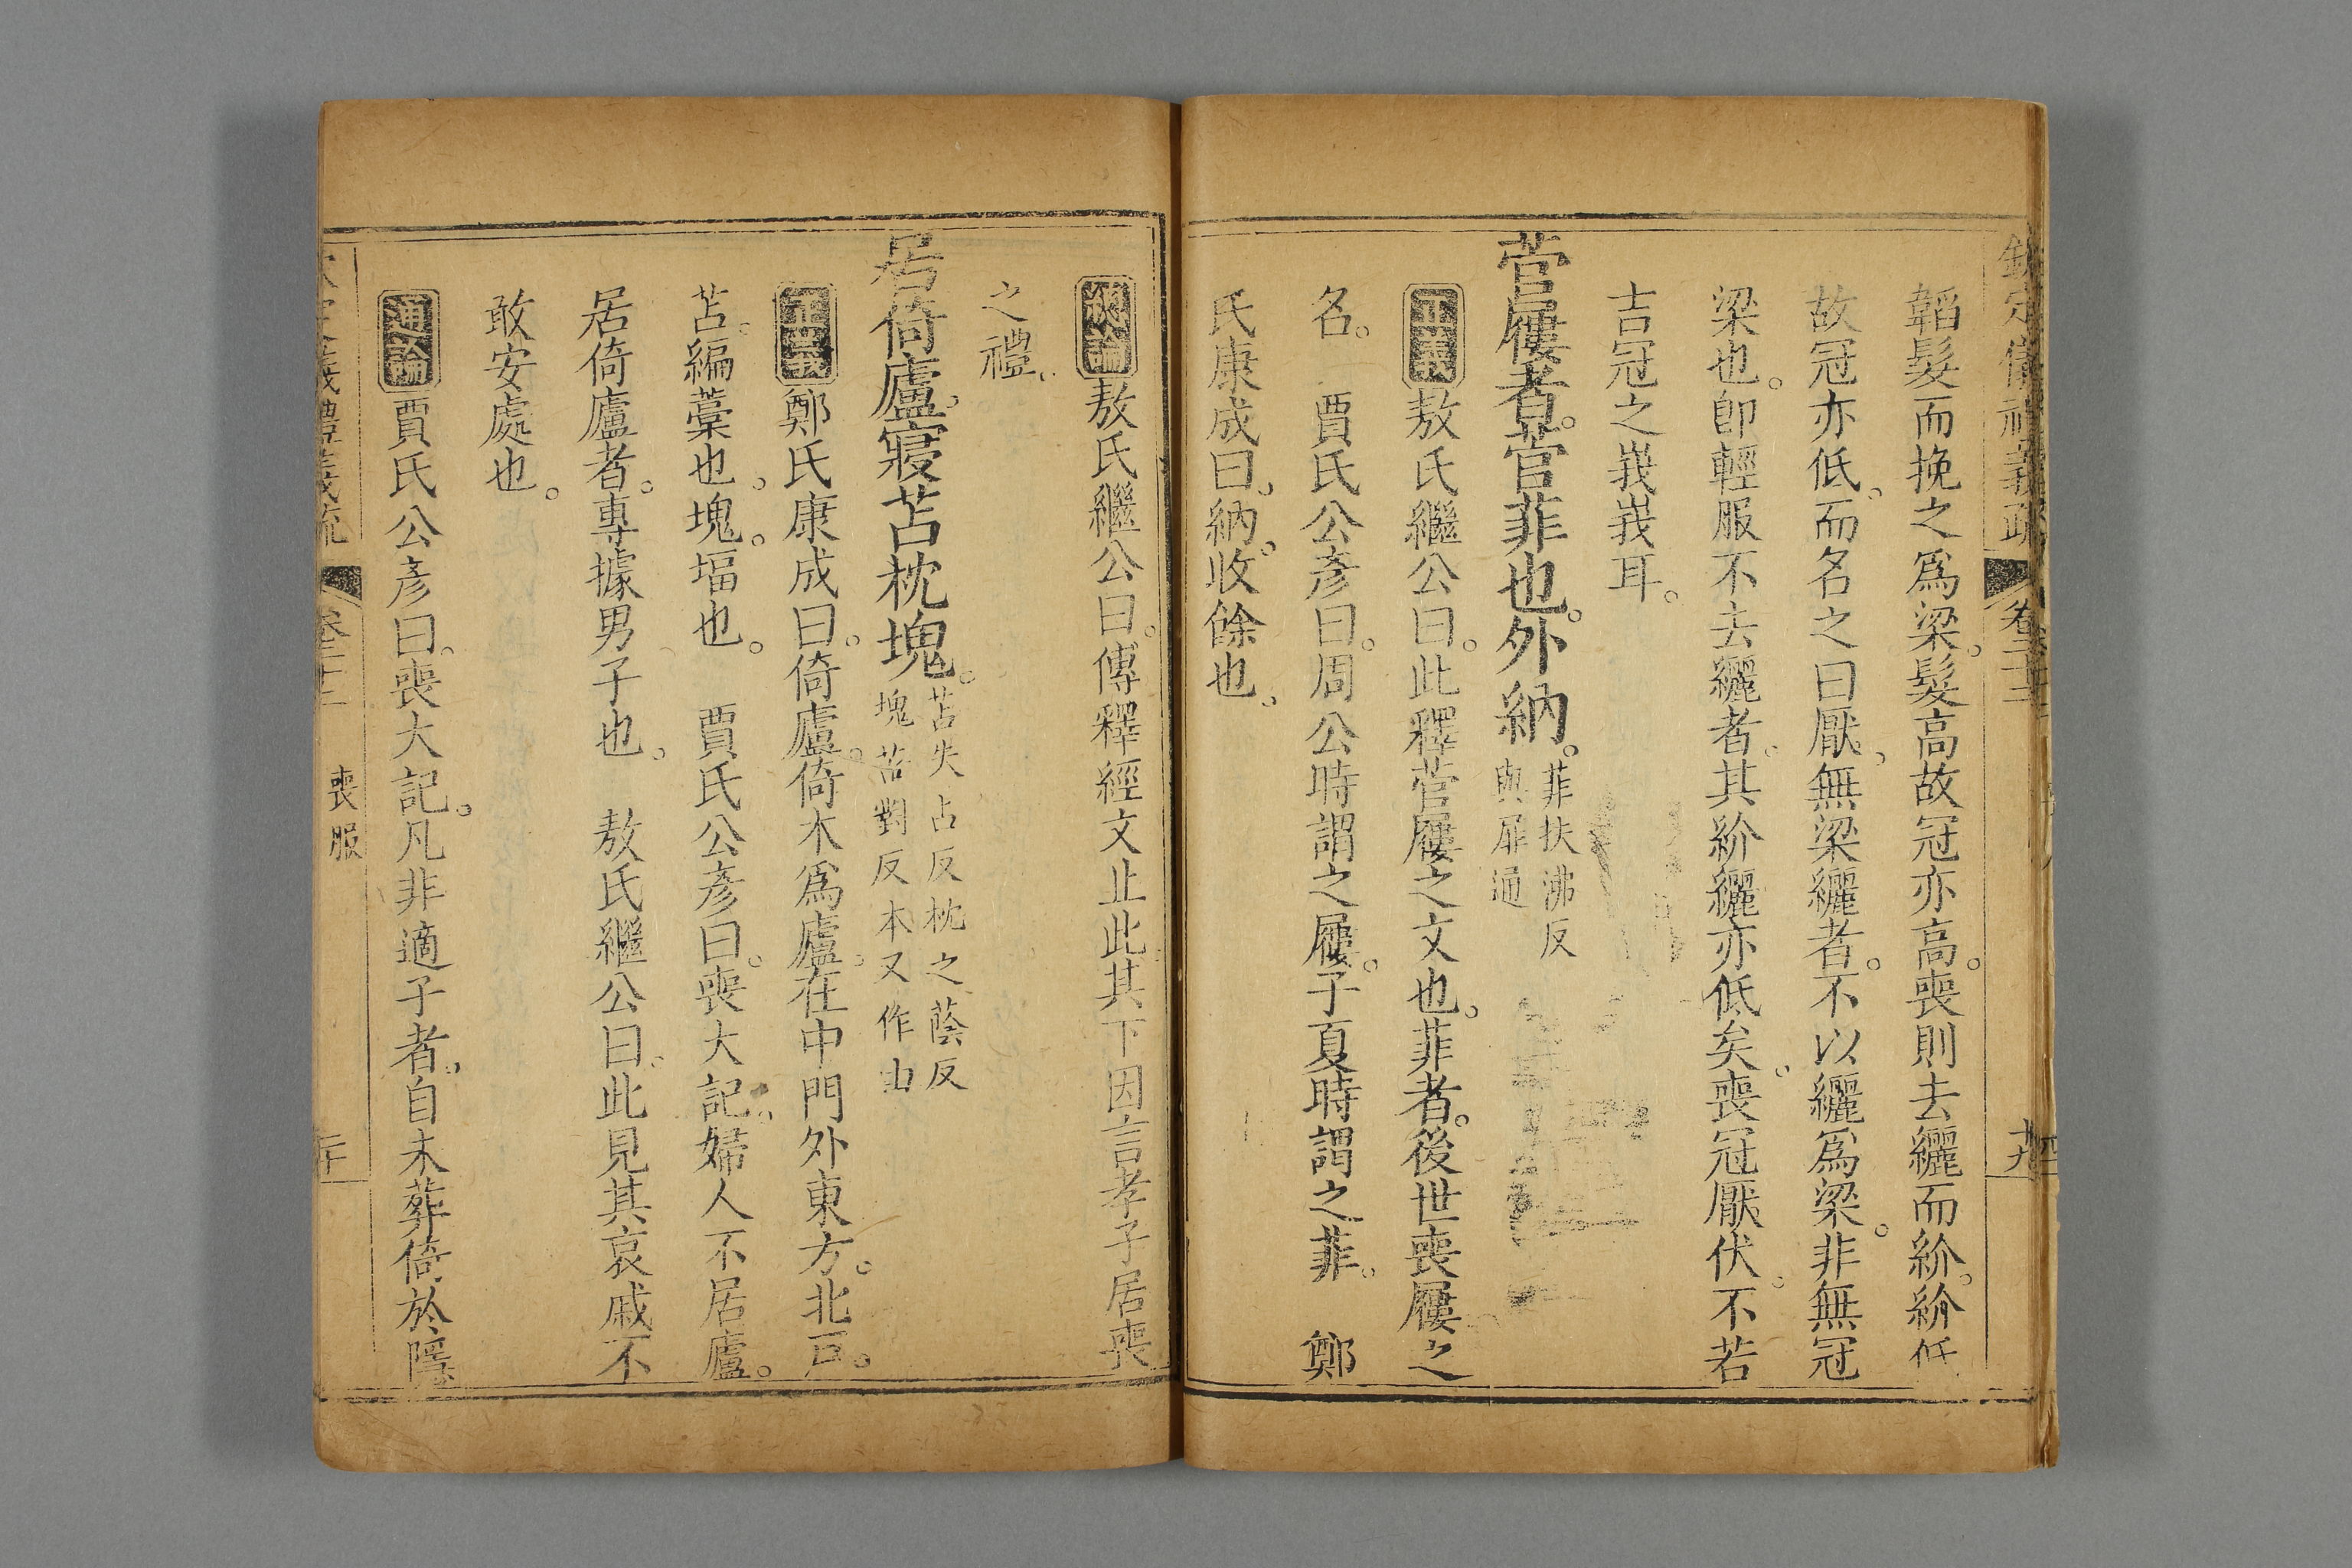 欽定儀禮義疏 卷二十二 十九
韜髮而挽之爲梁。髮高故冠亦高。喪則去纚而紒。紒低
故冠亦低。而名之曰厭。無梁纚者。不以纚爲梁。非無冠
梁也。卽輕服不去纚者。其紒纚亦低矣。喪冠厭伏。不若
吉冠之峩峩耳。
菅屨者。菅菲也。外納。
菲扶沸反
與屝通
正義敖氏繼公曰。此釋菅屨之文也。菲者。後世喪屨之
名。 賈氏公彥曰。周公時謂之屨。子夏時謂之菲。 鄭
氏康成曰。納。收餘也。
總論敖氏繼公曰。傳釋經文止此其下因言孝子居喪
之禮。
居倚廬。寢苫枕塊。
苫失占反枕之蔭反
塊苦對反本又作凷
正義鄭氏康成曰。倚廬。倚木爲廬。在中門外東方。北戸。
苫。編藁也。塊。堛也。 賈氏公彥曰。喪大記。婦人不居廬。
居倚廬者。專據男子也。 敖氏繼公曰。此見其哀戚不
敢安處也。
通論賈氏公彥曰。喪大記。凡非適子者。自未葬倚於隱
欽定儀禮義疏 卷二十二 喪服 二十